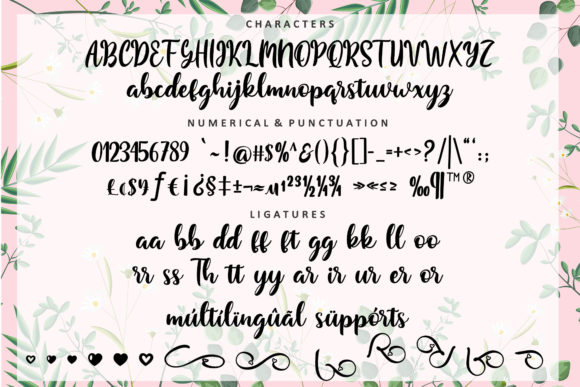 CHARACTERS
ABCDEFGHIJKLMNOPQRSTUVWXYZ
abcdefghijklmnopqrstuvwxyz
NUMERICAL & PUNCTUATION
0123456789 `~!@#$%^&(){}[]-_=+<>?/|\“‘:;
£¢($¥ƒ€¡¿§‡±¬≈µ¹²³½¼¾ »«≤≥ ‰¶™®
LIGATURES
aa bb dd ff ft gg kk ll oo
rr ss Th tt yy ar ir ur er or
múltílingûāl süppórts